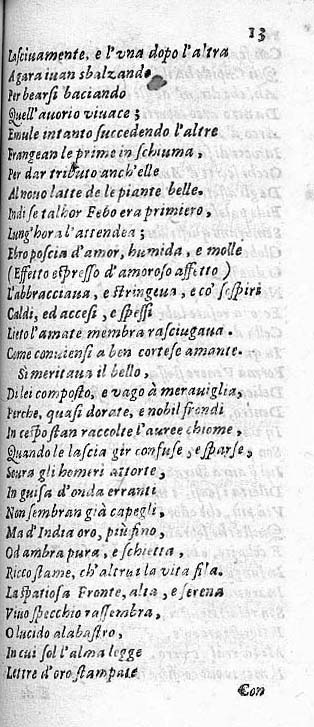 13
Lasciuamente, e l'vna dopo l'altra
A gara iuan sbalzando
Per bearsi baciando
Quell'auorio viuace;
Emule intanto succedendo l'altre
Frangean le prime in schiuma,
Per dar tributo anch'elle
Al nouo latte de le piante belle.
Indi se talhor Febo era primiero,
Lung'hora l'attendea;
Ebro poscia d'amor, humida, e molle
(Effetto espresso d'amoroso affetto)
L'abbracciaua, e stringeua, e co' sospiri
Caldi, ed accesi, e spessi
Lieto l'amate membra rasciugaua.
Come conuiensi a ben cortese amante.
Si meritaua il bello,
Di lei composto, e vago à merauiglia,
Perche, quasi dorate, e nobil frondi
In cespo stan raccolte l'auree chiome,
Quando le lascia gir confuse, e sparse,
Soura gli homeri attorte,
In guisa d'onda erranti
Non sembran già capegli,
Ma d'India oro, più fino,
Od ambra pura, e schietta,
Ricco stame, ch'altrui la vita fila.
La spatiosa Fronte, alta, e serena
Viuo specchio rassembra,
O lucido alabastro,
In cui sol l'alma legge
Lettre d'oro stampate
Con